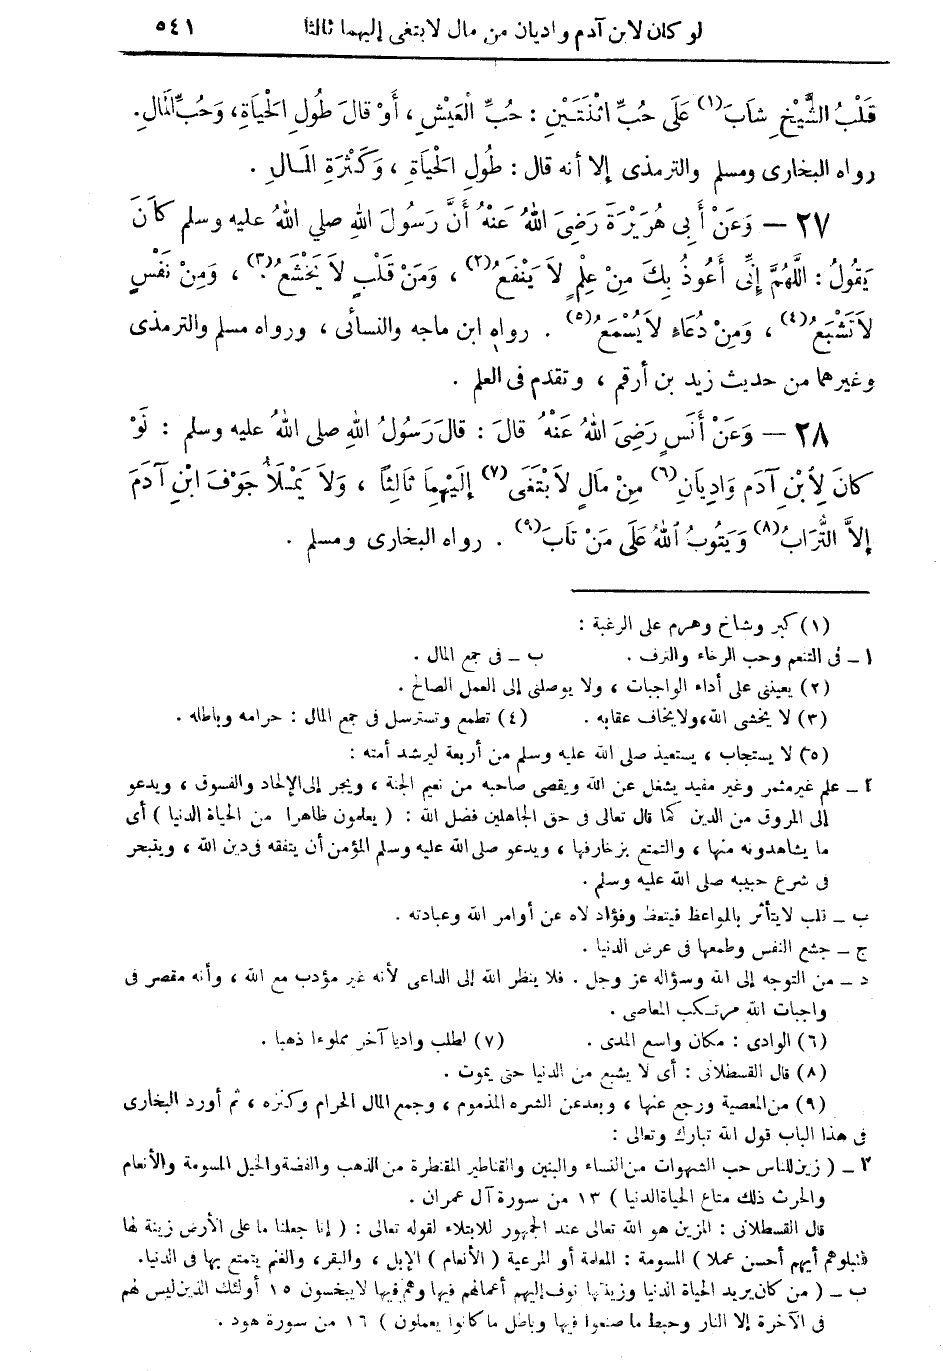 لو كان لابن آدم واديان من مال لابتغى إليهما ثالثا ٥٤١
قَلْبُ الشَّيْخِ شَابَّ(١) عَلَى حُبِّ اثْنَتَيْنِ : حُبِّ الْعَيْشِ ، أَوْ قَالَ طُولِ الْحَيَاةِ ، وَحُبِّ الْمَالِ .
رواه البخارى ومسلم والترمذى إلا أنه قال : طُولِ الْحَيَاةِ ، وَكَثْرَةِ الْمَـالِ .
٢٧ — وَعَنْ أَبِى هُرَيْرَةَ رَضِىَ اللهُ عَنْهُ أَنَّ رَسُولَ اللهِ صلي اللهُ عليه وسلم كَانَ
يَقُولُ : اللَّهُمَّ إِنِّى أَعُوذُ بِكَ مِنْ عِلْمٍ لاَ يَنْفَعُ(٢) ، وَمَنْ قَلْبٍ لاَ يَخْشَعُ(٣) ، وَمِنْ نَفْسٍ
لاَ تَشْبَعُ(٤) ، وَمِنْ دُعَاءٍ لاَ يُسْمَعُ(٥) . رواه ابن ماجه والنسائى ، ورواه مسلم والترمذى
وغيرهما من حديث زيد بن أرقم ، وتقدّم فى العلم .
٢٨ — وَعَنْ أَنَسٍ رَضِىَ اللهُ عَنْهُ قالَ : قالَ رَسُولُ اللهِ صلى اللهُ عليه وسلم : لَوْ
كانَ لِأبْنِ آدَمَ وَادِيَانِ(٦) مِنْ مَالٍ لاَبْتَغَى(٧) إِلَيْهِمَا ثَالِثًا ، وَلاَ يَمْـلَأُ جَوْفَ ابْنِ آدَمَ
إِلاَّ التُّرَابُ(٨) وَيَتُوبُ اللهُ عَلَى مَنْ تَابَ(٩) . رواه البخارى ومسلم .
(١) كبر وشاخ وهرم على الرغبة :
ا ــ فى التنعم وحب الرخاء والترف . ب ــ فى جمع المال .
(٢) يعيننى على أداء الواجبات ، ولا يوصلنى إلى العمل الصالح .
(٣) لا يخشى الله، ولا يخاف عقابه . (٤) تطمع وتسترسل فى جمع المال : حرامه وباطله .
(٥) لا يستجاب ، يستعيذ صلى الله عليه وسلم من أربعة ليرشد أمته :
ا ــ علم غير مثمر وغير مفيد يشغل عن الله ويقصى صاحبه من نعيم الجنة ، ويجر إلى الإلحاد والفسوق ، ويدعو
إلى المروق من الدين كما قال تعالى فى حق الجاهلين فضل الله : ( يعلمون ظاهرا من الحياة الدنيا ) أى
ما يشاهدونه منها ، والتمتع بزخارفها ، ويدعو صلى الله عليه وسلم المؤمن أن يتفقه فى دين الله ، ويتبحر
فى شرع حبيبه صلى الله عليه وسلم .
ب ــ قلب لا يتأثر بالمواعظ فيتعظ وفؤاد لاه عن أوامر الله وعبادته .
ج ــ جشع النفس وطمعها فى عرض الدنيا .
د ــ من التوجه إلى الله وسؤاله عز وجل . فلا ينظر الله إلى الداعى لأنه غير مؤدب مع الله ، وأنه مقصر فى
واجبات الله مرتـكب المعاصى .
(٦) الوادى : مكان واسع المدى . (٧) لطلب واديا آخر مملوءا ذهبا .
(٨) قال القسطلانى : أى لا يشبع من الدنيا حتى يموت .
(٩) من المعصية ورجع عنها ، وبعد عن الشره المذموم ، وجمع المال الحرام وكنزه ، ثم أورد البخارى
فى هذا الباب قول الله تبارك وتعالى :
ا ــ ( زين للناس حب الشهوات من النساء والبنين والقناطير المقنطرة من الذهب والفضة والخيل المسومة والأنعام
والحرث ذلك متاع الحياة الدنيا ) ١٣ من سورة آل عمران .
قال القسطلانى : المزين هو الله تعالى عند الجمهور للابتلاء لقوله تعالى : ( إنا جعلنا ما على الأرض زينة لها
لنبلوهم أيهم أحسن عملا ) المسومة : المعلمة أو المرعية ( الأنعام ) الإبل ، والبقر، والغنم يتمتع بها فى الدنيا.
ب ــ ( من كان يريد الحياة الدنيا وزينتها نوف إليهم أعمالهم فيها وهم فيها لا يبخسون ١٥ أولئك الذين ليس لهم
فى الآخرة إلا النار وحبط ما صنعوا فيها وباطل ما كانوا يعملون ) ١٦ من سورة هود .